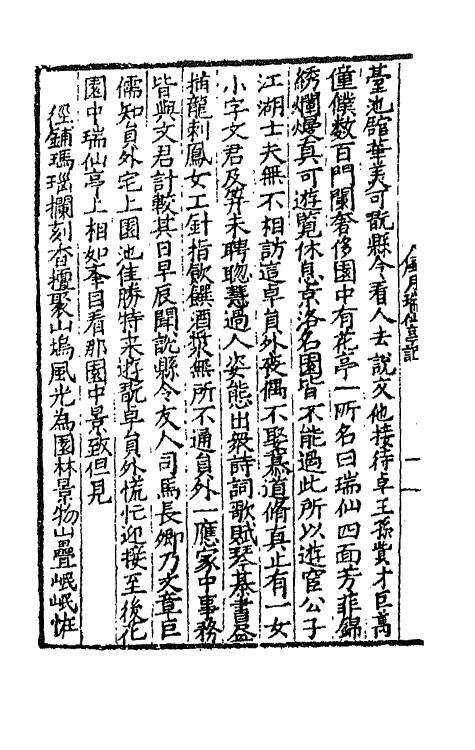 風月瑞仙亭記
一
臺池舘華美可翫縣令着人去說交他接待卓王孫貲才巨萬
僮僕数百門闌奢侈園中有花亭一所名曰瑞仙四面芳菲錦
綉爛熳真可遊覧休息京洛名園皆不能過此所以遊宦公子
江湖士夫無不相訪這卓員外丧偶不娶慕道脩真止有一女
小字文君及筓未聘聦慧過人姿態出衆詩詞歌賦琴棊書畫
描龍刺鳳女工針指飲饌酒漿無所不通員外一應家中事務
皆與文君計較其日早辰聞說縣令友人司馬長卿乃文章巨
儒知員外宅上園池佳勝特来遊翫卓員外慌忙迎接至後花
園中瑞仙亭上相如舉目看那園中景致但見
徑鋪瑪瑙欄刻香檀聚山塢風光為園林景物山疊岷岷恠